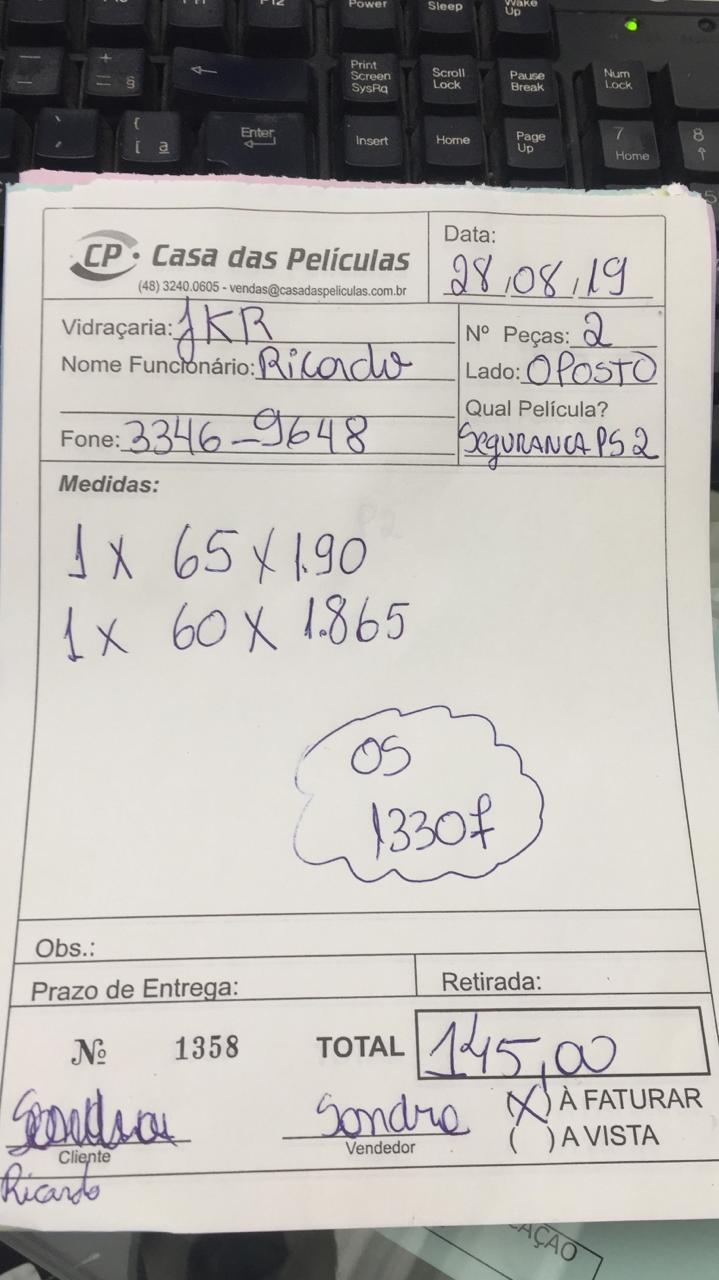 Power
Sleep
Wake Up
Print Screen SysRq
Scroll Lock
Pause Break
Num Lock
Enter
Insert
Home
Page Up
7 Home
8
CP Casa das Películas
(48) 3240.0605 - vendas@casadaspeliculas.com.br
Data:
28/08/19
Vidraçaria: JKR
Nome Funcionário: Ricardo
Fone: 3346-9648
Nº Peças: 2
Lado: OPOSTO
Qual Película?
SEGURANCA PS2
Medidas:
1 X 65 X 1.90
1 X 60 X 1.865
OS
13307
Obs.:
Prazo de Entrega:
Retirada:
Nº 1358
TOTAL 145,00
(X) À FATURAR
( ) A VISTA
Sandra
Vendedor
Cliente
Ricardo